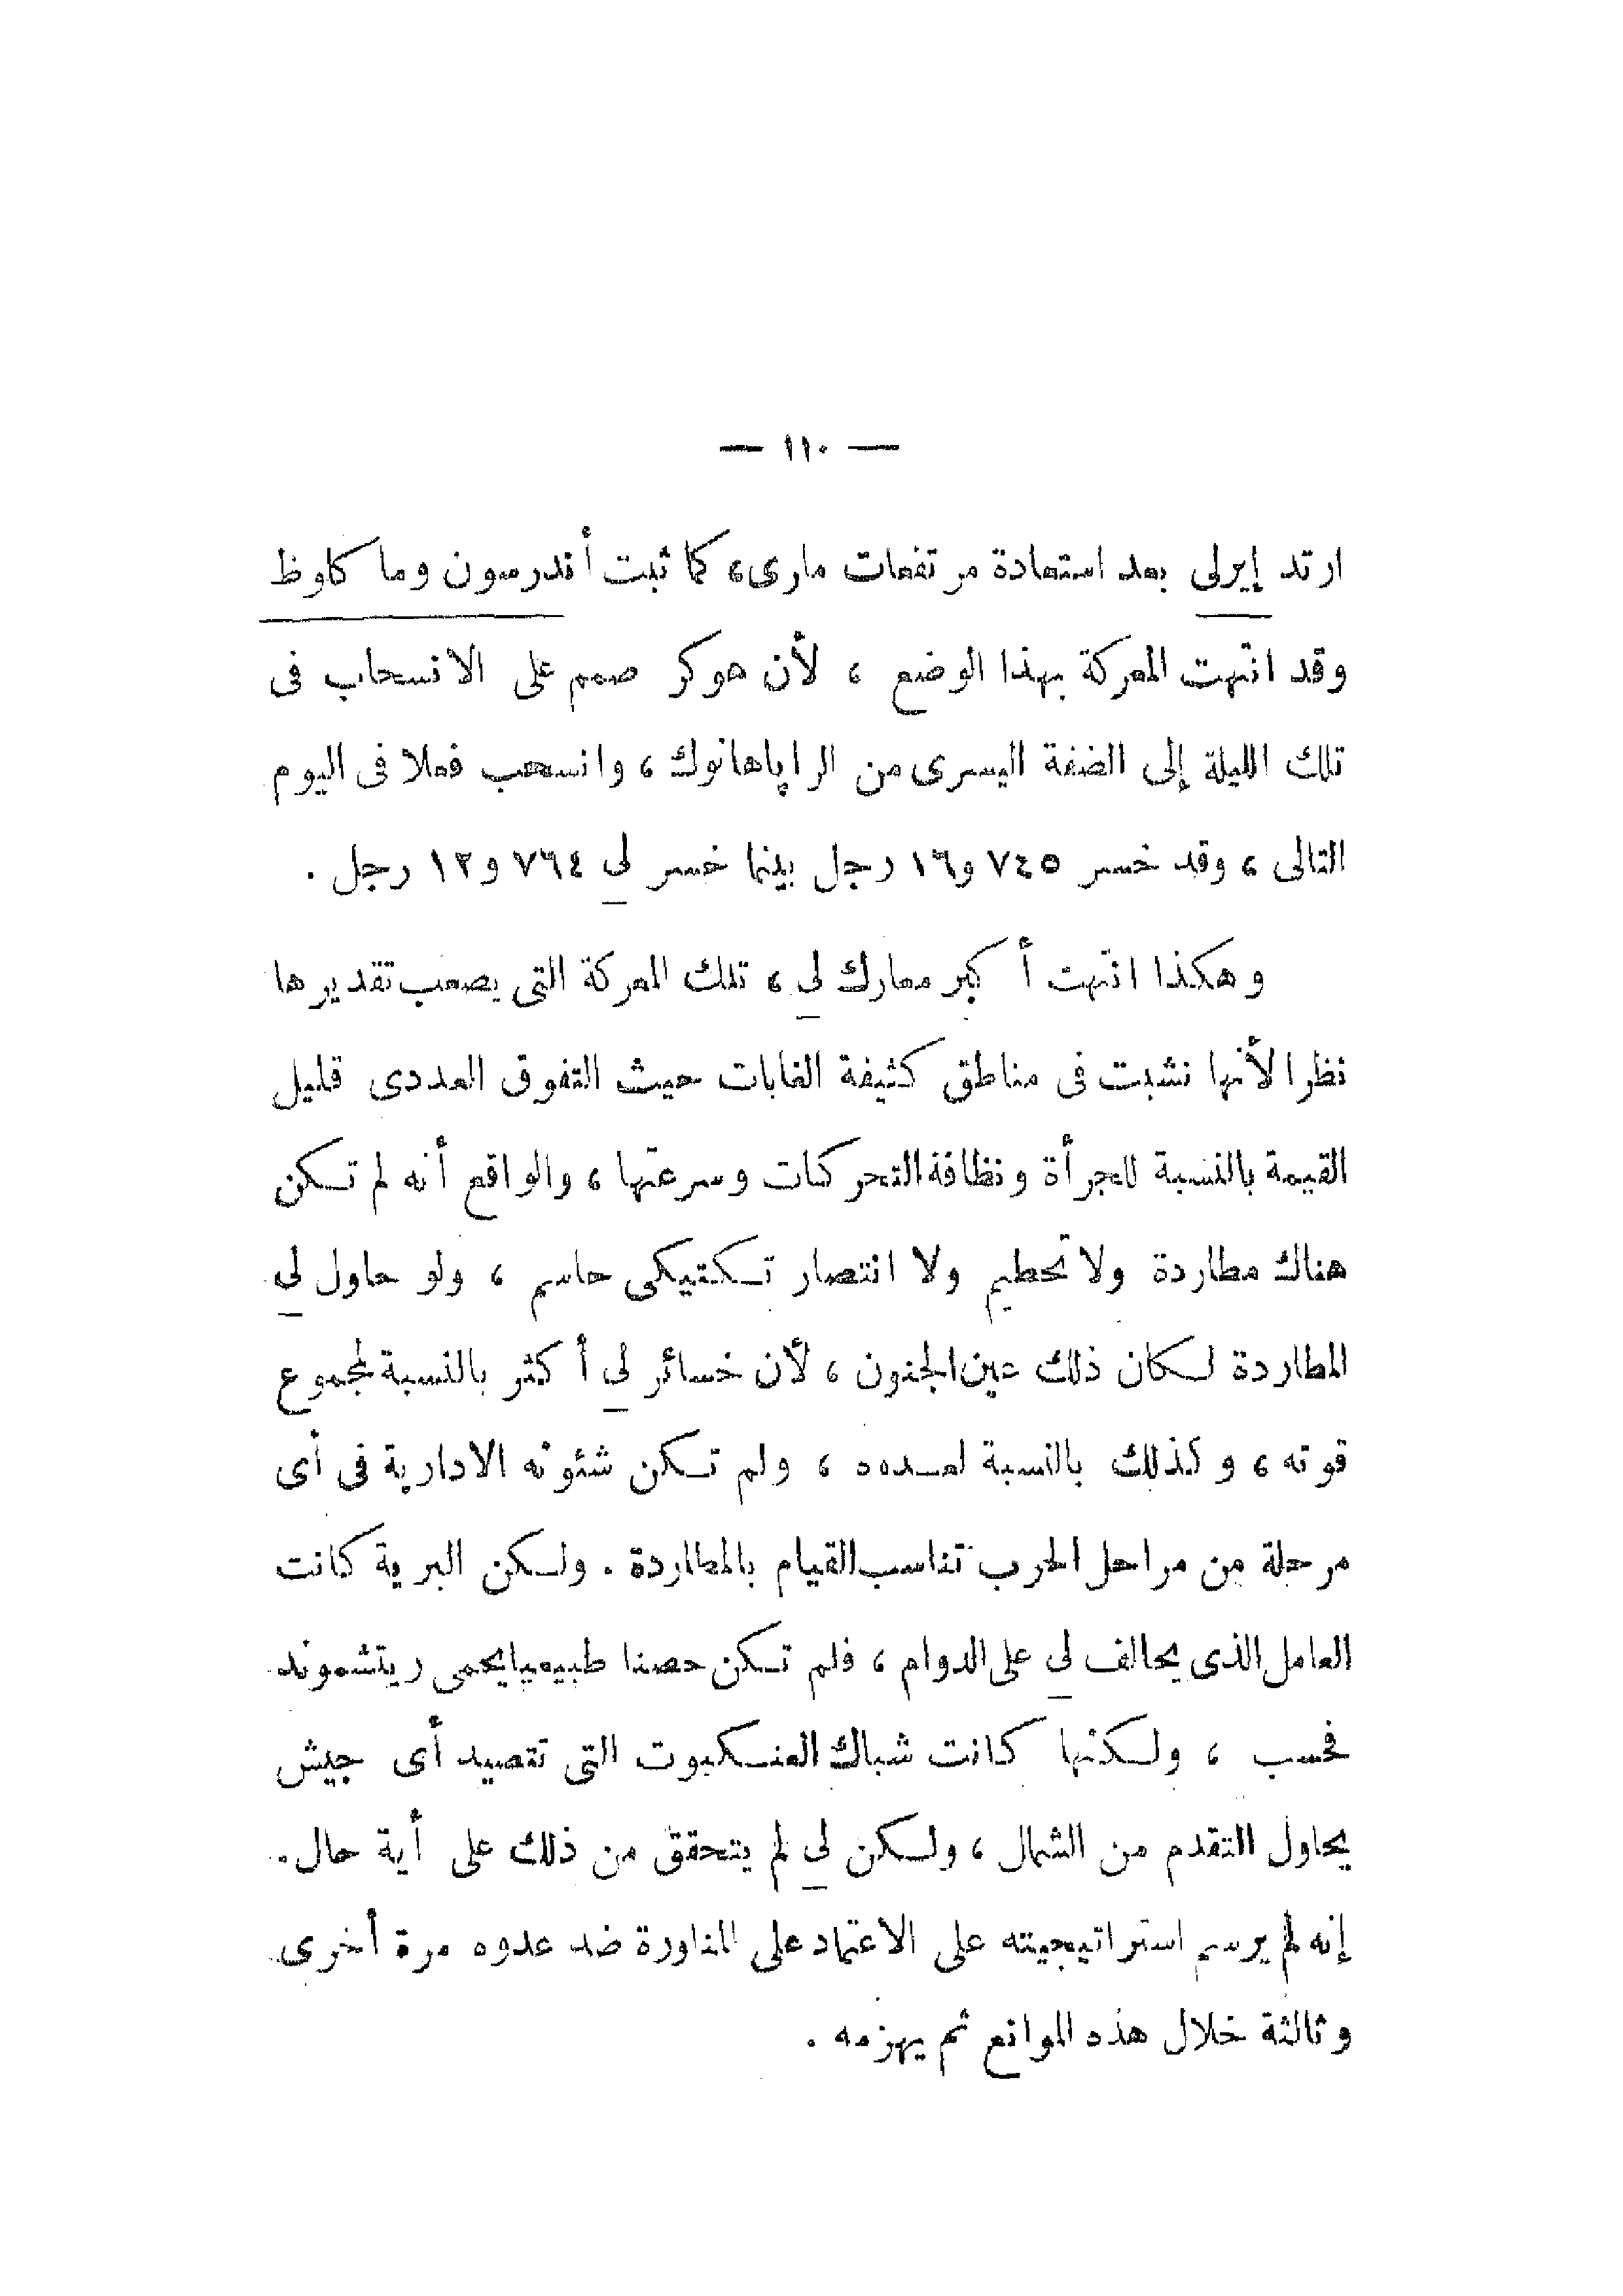 — ١١٠ —
ارتد إيرلى بعد استعادة مرتفعات مارى، كما ثبت أندرسون وما كاوظ
وقد انتهت المعركة بهذا الوضع ، لأن هوكر صمم على الانسحاب فى
تلك الليلة إلى الضفة اليسرى من الراپاهانوك ، وانسحب فعلا فى اليوم
التالى ، وقد خسر ٧٤٥ و١٦ رجل بينما خسر لى ٧٦٤ و١٢ رجل .
وهكذا انتهت أكبر معارك لى ، تلك المعركة التى يصعب تقديرها
نظرا لأنها نشبت فى مناطق كثيفة الغابات حيث التفوق العددى قليل
القيمة بالنسبة للجرأة ونظافة التحركات وسرعتها ، والواقع أنه لم تكن
هناك مطاردة ولا تحطيم ولا انتصار تكتيكى حاسم ، ولو حاول لى
المطاردة لكان ذلك عين الجنون ، لأن خسائر لى أكثر بالنسبة لمجموع
قوته ، وكذلك بالنسبة لعدوه ، ولم تكن شئونه الادارية فى أى
مرحلة من مراحل الحرب تناسب القيام بالمطاردة . ولكن البرية كانت
العامل الذى يحالف لى على الدوام ، فلم تكن حصنا طبيعيا يحمى ريتشموند
فحسب ، ولكنها كانت شباك العنكبوت التى تتصيد أى جيش
يحاول التقدم من الشمال ، ولكن لى لم يتحقق من ذلك على أية حال .
إنه لم يرسم استراتيجيته على الاعتماد على المناورة ضد عدوه مرة أخرى
وثالثة خلال هذه الموانع ثم يهزمه .